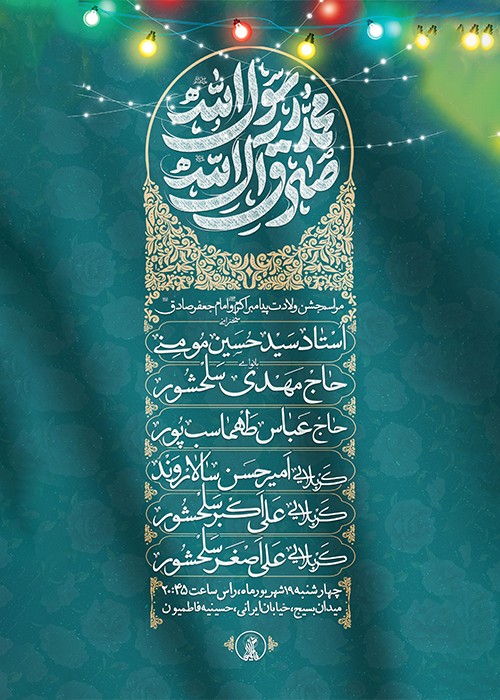 محمد رسول الله
صلی الله و آل الله
مراسم جشن ولادت پیامبر اکرم و امام جعفر صادق
سخنرانی
استاد سید حسین مومنی
بانوای
حاج مهدی سلحشور
حاج عباس طهماسب پور
کربلایی امیرحسن سالاروند
کربلایی علی اکبر سلحشور
کربلایی علی اصغر سلحشور
چهارشنبه ۱۹ شهریورماه، راس ساعت ۲۰:۴۵
میدان بسیج، خیابان ایرانی، حسینیه فاطمیون